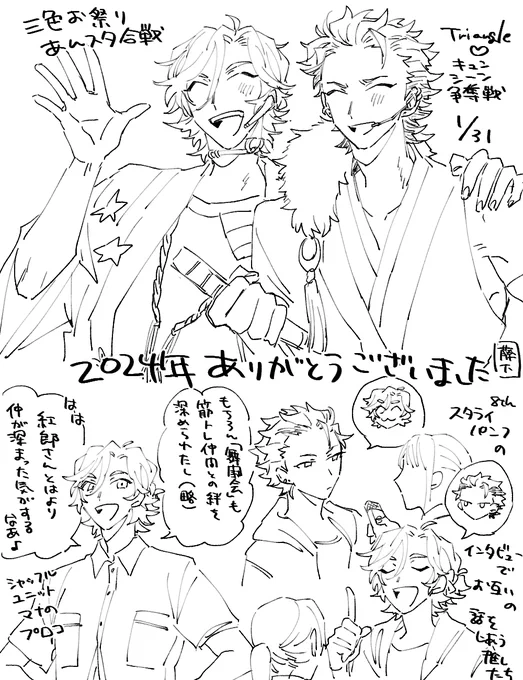 三色お祭り
あんスタ合戦
Triangle
♡
キュン
シーン
争奪戦
1/31
2024年ありがとうございました
はは
紅郎さんとはより
仲が深まった気がする
なあよ
もちろん「舞闘会」も
筋トレ仲間との絆を
深められたし(略)
8th
スタライ
パンフ
の
インタビュー
で
お互い
の
話を
しあう
推し
たち
シャッフル
ユニット
マナの
プロコ